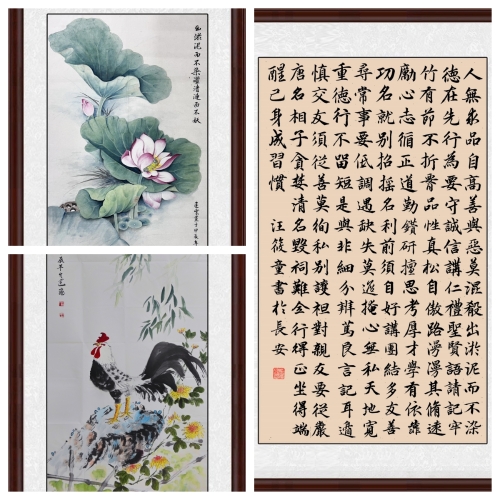 出淤泥而不染濯清漣而不妖
人無品自高善與惡莫混殽出淤泥而不染
德在先行為要守誠信講仁禮聖賢語請記牢
竹有節不折脊品性真松自傲路漫漫其脩遠
勵心志循正道勤鑽研擅思考厚才學有依靠
功名就別招搖名利前須自好講團結多友善
尋常事要低調遇缺失莫遮掩心無私天地寬
重德行不留短是與非細分辨篤良言記耳邊
慎交友須從善莫徇私別護袒對親友要從嚴
唐名相子貪婪清名毀祠難全行得正坐得端
醒己身成習慣 汪筱童書於長安